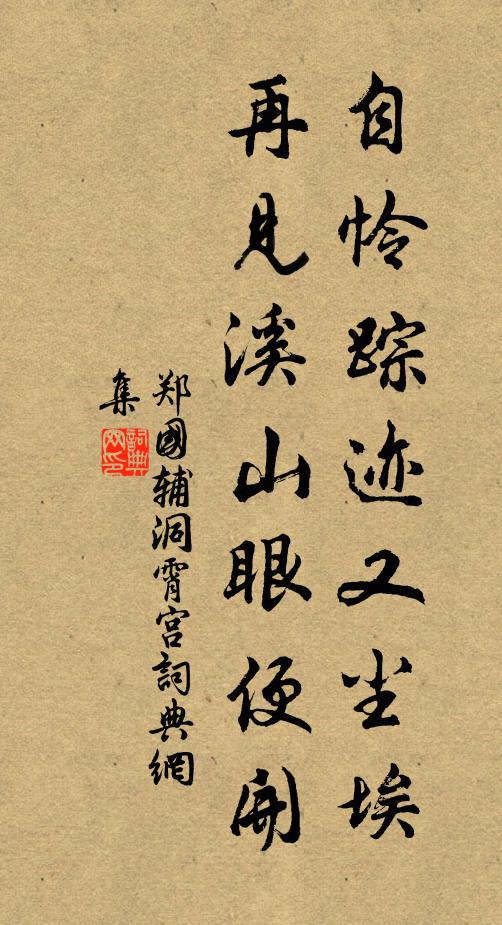 自怜踪迹又尘埃
再见溪山眼便开
郑國辅洞霄宫詞典網
集
詞典
网印